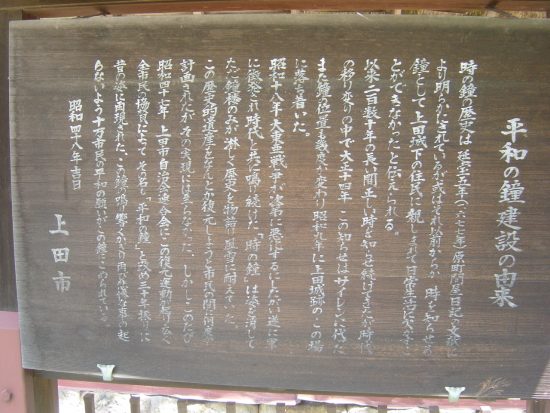 平和の鐘建設の由来
時の鐘の歴史は 延宝五年(一六七七年)原町問屋日記の文献に
より明らかにされているが或はそれ以前からか 時を知らせる
鐘として上田城下の住民に親しまれて日常生活に欠くこ
とができなかったと伝えられる。
以来二百数十年の長い間平和な時を知らせ続けてきたが時代
の移り変りの中で大正十四年 この知らせはサイレンに代た
また鐘の位置も幾度か変わり昭和九年に上田城跡のこの場
に落ち着いた。
昭和十八年大東亜戦争が次第に悪化するにしたがい遂に軍
に徴発され時代と共に鳴り続けた「時の鐘」は姿を消して
ただ鐘楼のみが淋しく歴史を物語り風雪に耐えていた。
この歴史的遺産をなんとか復元しようと市民の間に再三
計画されたが その実現には至らなかった しかしこのたび
昭和四十七年 上田市自治会連合会にこの復元運動が起り広く
全市民の協賛によってその名も「平和の鐘」と改め三十年振りに
昔の姿に再現された、この鐘の鳴り響くかぎり再び戦争の起
らないよう十万市民の平和の願いがこの鐘にこめられている。
昭和四十八年 吉日
上田市